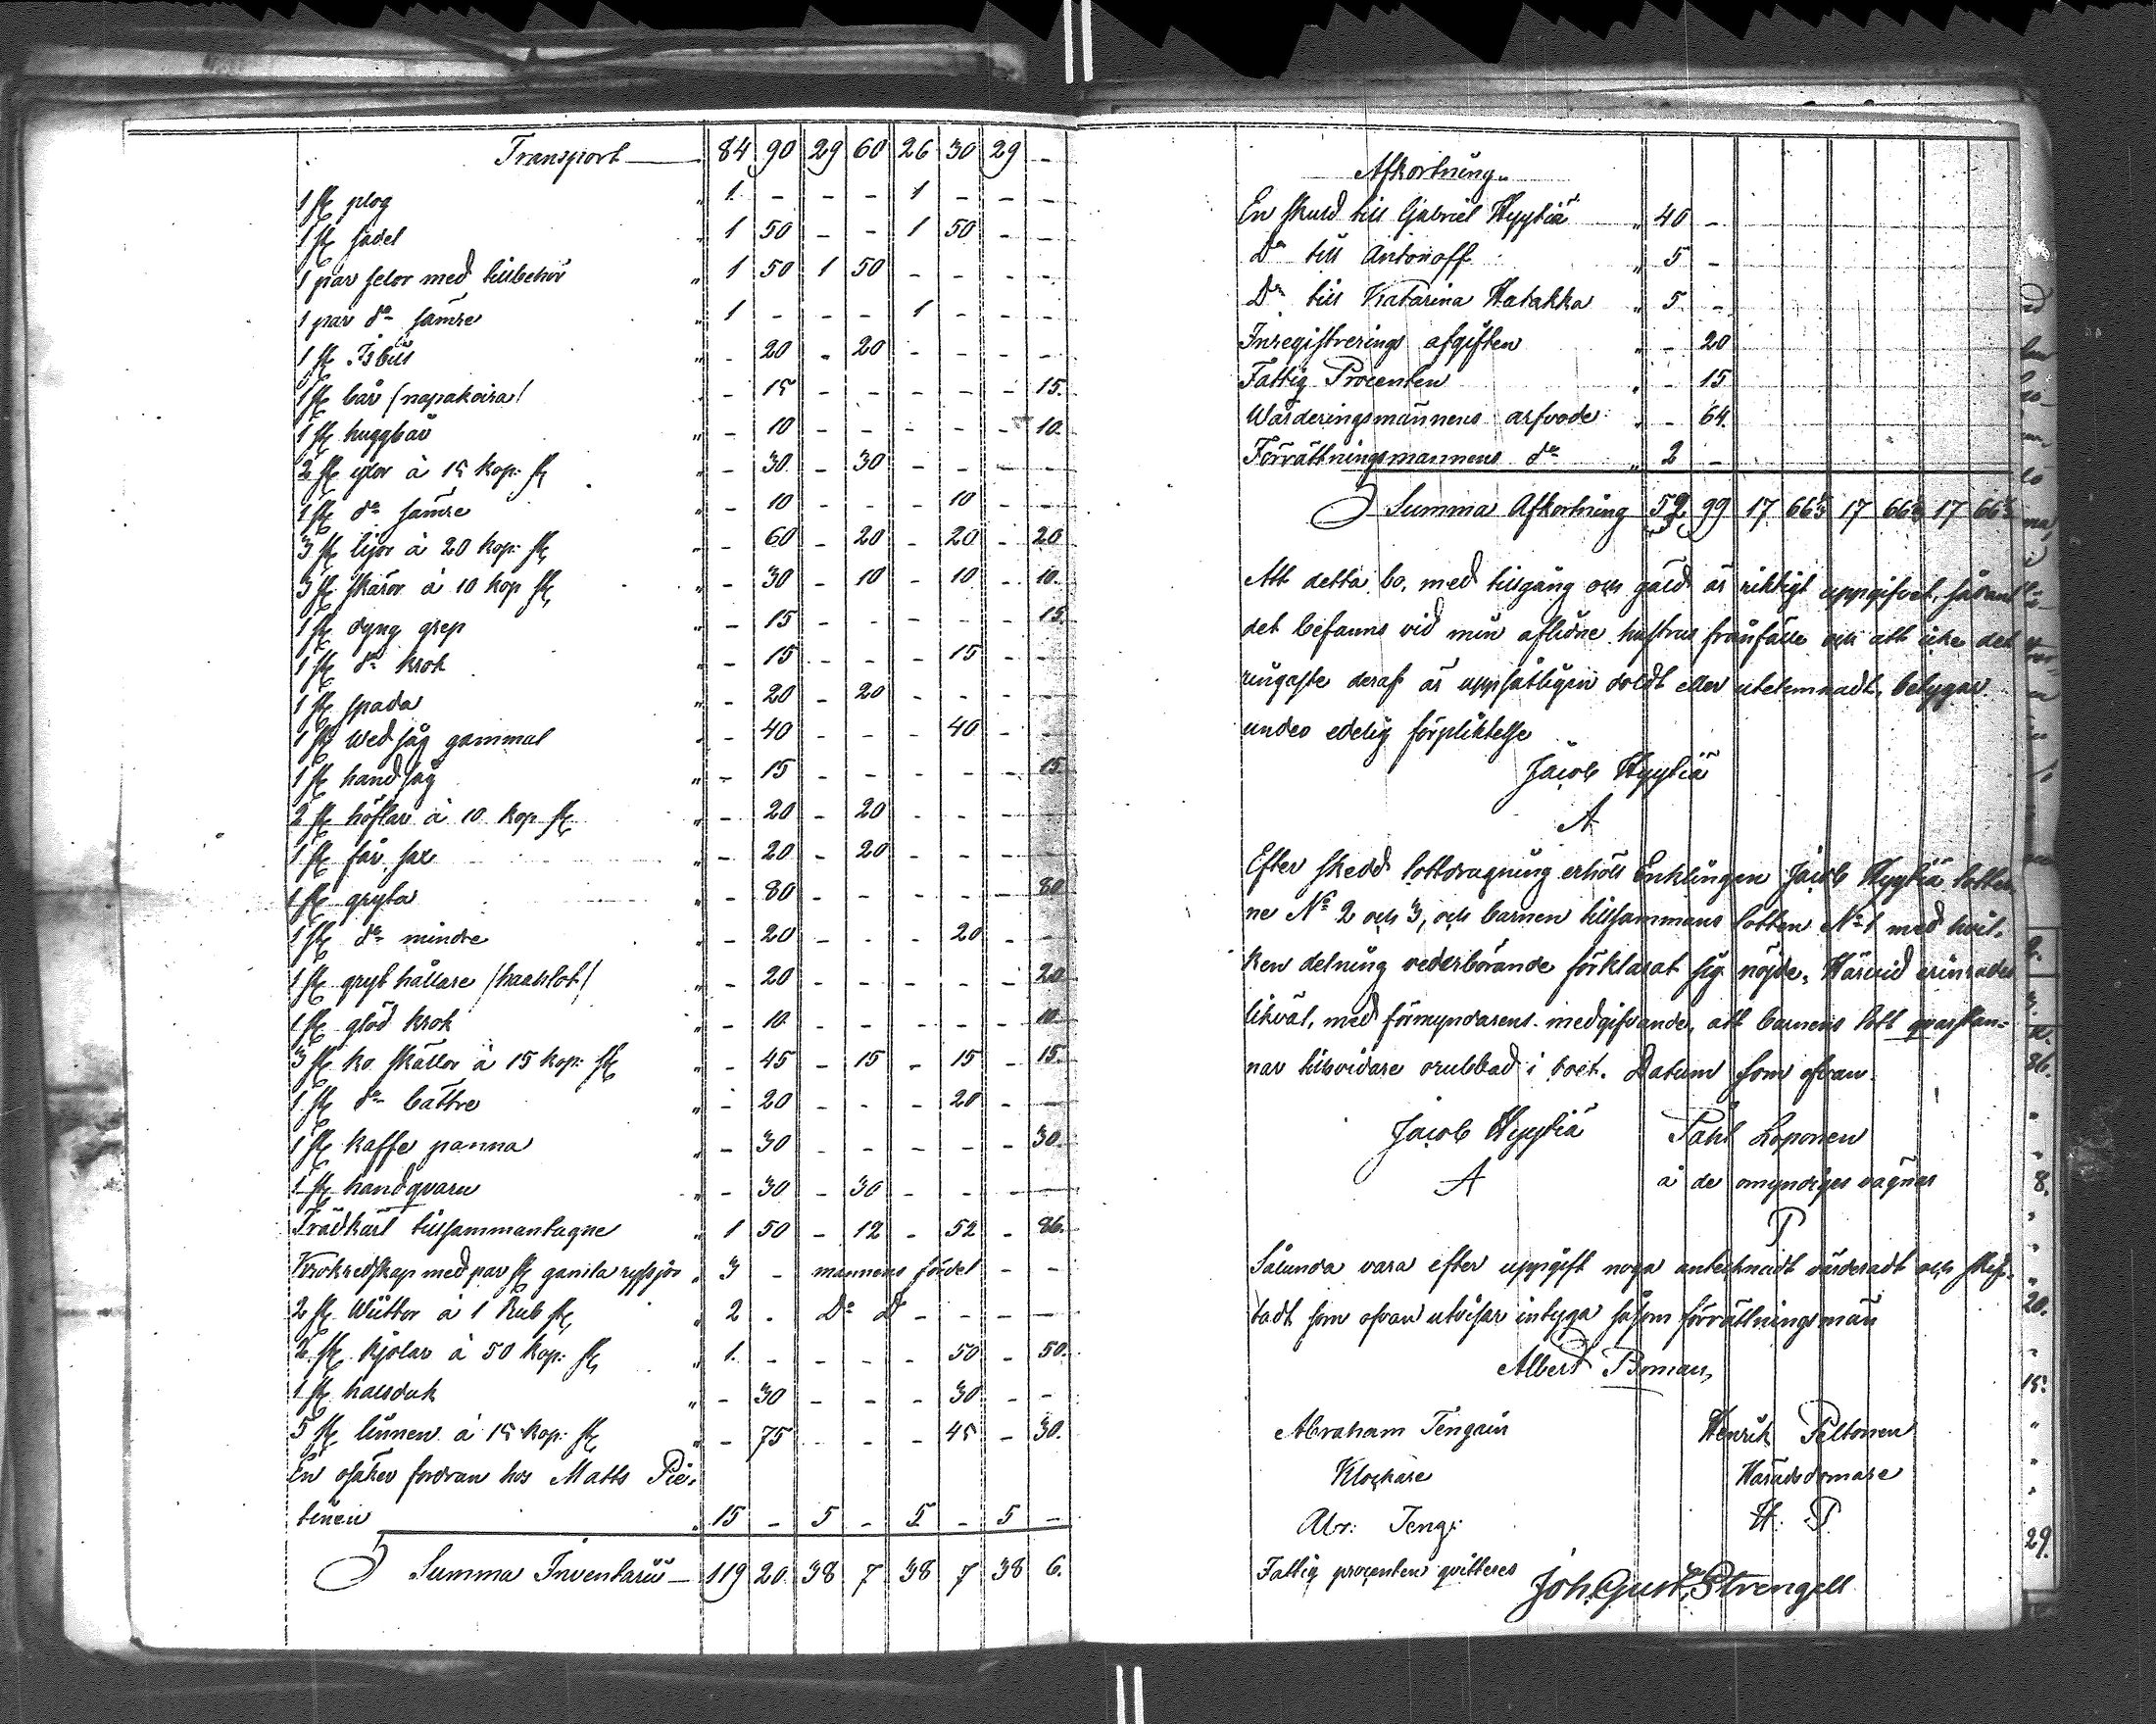 Transport 84 90 29 60 26 30 29 -
1 st plog " 1 - - - 1 - - -
1 st sadel " 1 50 - - 1 50 - -
1 par selor med tillbehör " 1 50 1 50 - - - -
1 par do sämre " 1 - - - 1 - - -
1 st Isbill " - 20 - 20 - - - -
1 st bår (napakoira) - 15 - - - - - 15.
1 st huggbår " - 10 - - - - - 10.
2 st yxor à 15 kop: st " - 30 - 30 - - - -
1 st do sämre " - 10 - - - 10 - -
3 st lijor à 20 kop: st " - 60 - 20 - 20 - 20
3 st skäror à 10 kop st " - 30 - 10 - 10 - 10.
1 st dyng grep " - 15 - - - - - 15.
1 st do krok " - 15 - - - 15 - -
1 st spada " - 20 - 20 - - - -
1 st wed såg gammal " - 40 - - - 40 - -
1 st hand såg " - 15 - - - - - 15.
2 st höflar à 10 kop st " - 20 - 20 - - - -
1 st får sax " - 20 - 20 - - - -
1 st gryta " - 80 - - - - - 80.
1 st do mindre " - 20 - - - 20 - -
1 st gryt hållare (haahlot) " - 20 - - - - - 20
1 st glöd krok " - 10 - - - - - 10.
3 st ko skällor à 15 kop: st " - 45 - 15 - 15 - 15.
1 st do bättre " - 20 - - - 20 - -
1 st kaffe panna " - 30 - - - - - 30.
1 st handqvarn " - 30 - 30 - - - -
Trädkäril tillsammantagne " 1 50 - 12 - 52 - 86.
Krokredskap med par st gamla ryssjor " 3 - mannens fördel - -
2 st Wüttor à 1 Rub st " 2 - Do Do - - - -
2 st kjolar à 50 kop: st " 1 - - - - 50 - 50.
1 st halsduk " - 30 - - - 30 - -
5 st linnen à 15 kop: st " - 75 - - - 45 - 30.
En osäker fordran hos Matts Pie-
tinen " 15 - 5 - 5 - 5 -
Summa Inventarii - 119 20 38 7 38 7 38 6.
Afkortning.
En skuld till Gabriel Hyytiä " 40 -
Do till Antonoff " 5 -
Do till Katarina Hatakka " 5 -
Inregistrerings afgiften " - 20
Fattig Procenten " - 15
Wärderingsmännens arfvode " - 64.
Förrättningsmannens do " 2 -
Summa Afkortning 52 99 17 66⅓ 17 66⅓ 17 66⅓
Att detta bo, med tillgång och gäld är riktigt uppgifvet, sådant
det befanns vid min aflidne hustrus frånfälle och att icke det
ringaste deraf är uppsåtligen doldt eller utelemnadt, betygar
under edelig förpliktelse
Jacob Hyytiä
A
Efter skedd lottdragning erhöll Enklingen Jacob Hyytiä lotter
ne No 2 och 3, och barnen tillsammans lotten No 1 med hvil-
ken delning vederbörande förklarat sig nöjde. Härvid erinrades
likväl, med förmyndarens medgifvande, att barnens lott qvarstan-
nar tillsvidare orubbad i boet. Datum som ofvan.
Jacob Hyytiä Påhl Loponen
A å de omyndiges vägnar
P
Sålunda vara efter uppgift noga antecknadt värderadt och skif-
tadt som ofvan utvisar intyga såsom förrättningsmän
Albert Boman,
Abraham Tengain Henrik Peltonen
Klockare Häradsdomare
Abr: Teng: H. P.
Fattig procenten qvitteres Joh. Gust. Strengell